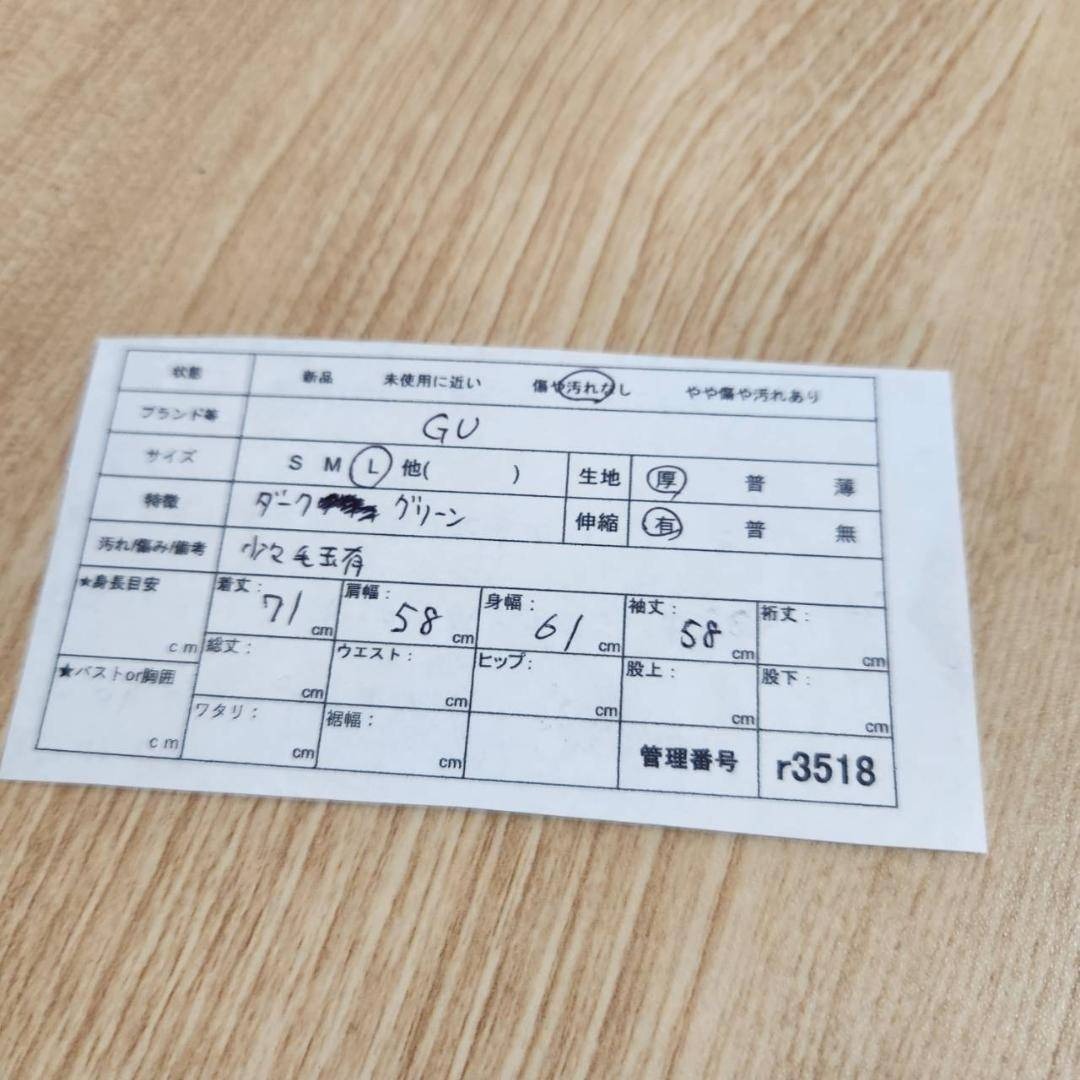 状態 新品 未使用に近い 傷や汚れなし やや傷や汚れあり
ブランド等 GU
サイズ S M L 他( ) 生地 厚 普 薄
特徴 ダーク グリーン 伸縮 有 普 無
汚れ/傷み/備考 少々毛玉有
★身長目安 cm 着丈: 71 cm 肩幅: 58 cm 身幅: 61 cm 袖丈: 58 cm 裄丈: cm
★バストor胸囲 cm 総丈: cm ウエスト: cm ヒップ: cm 股上: cm 股下: cm
ワタリ: cm 裾幅: cm 管理番号 r3518